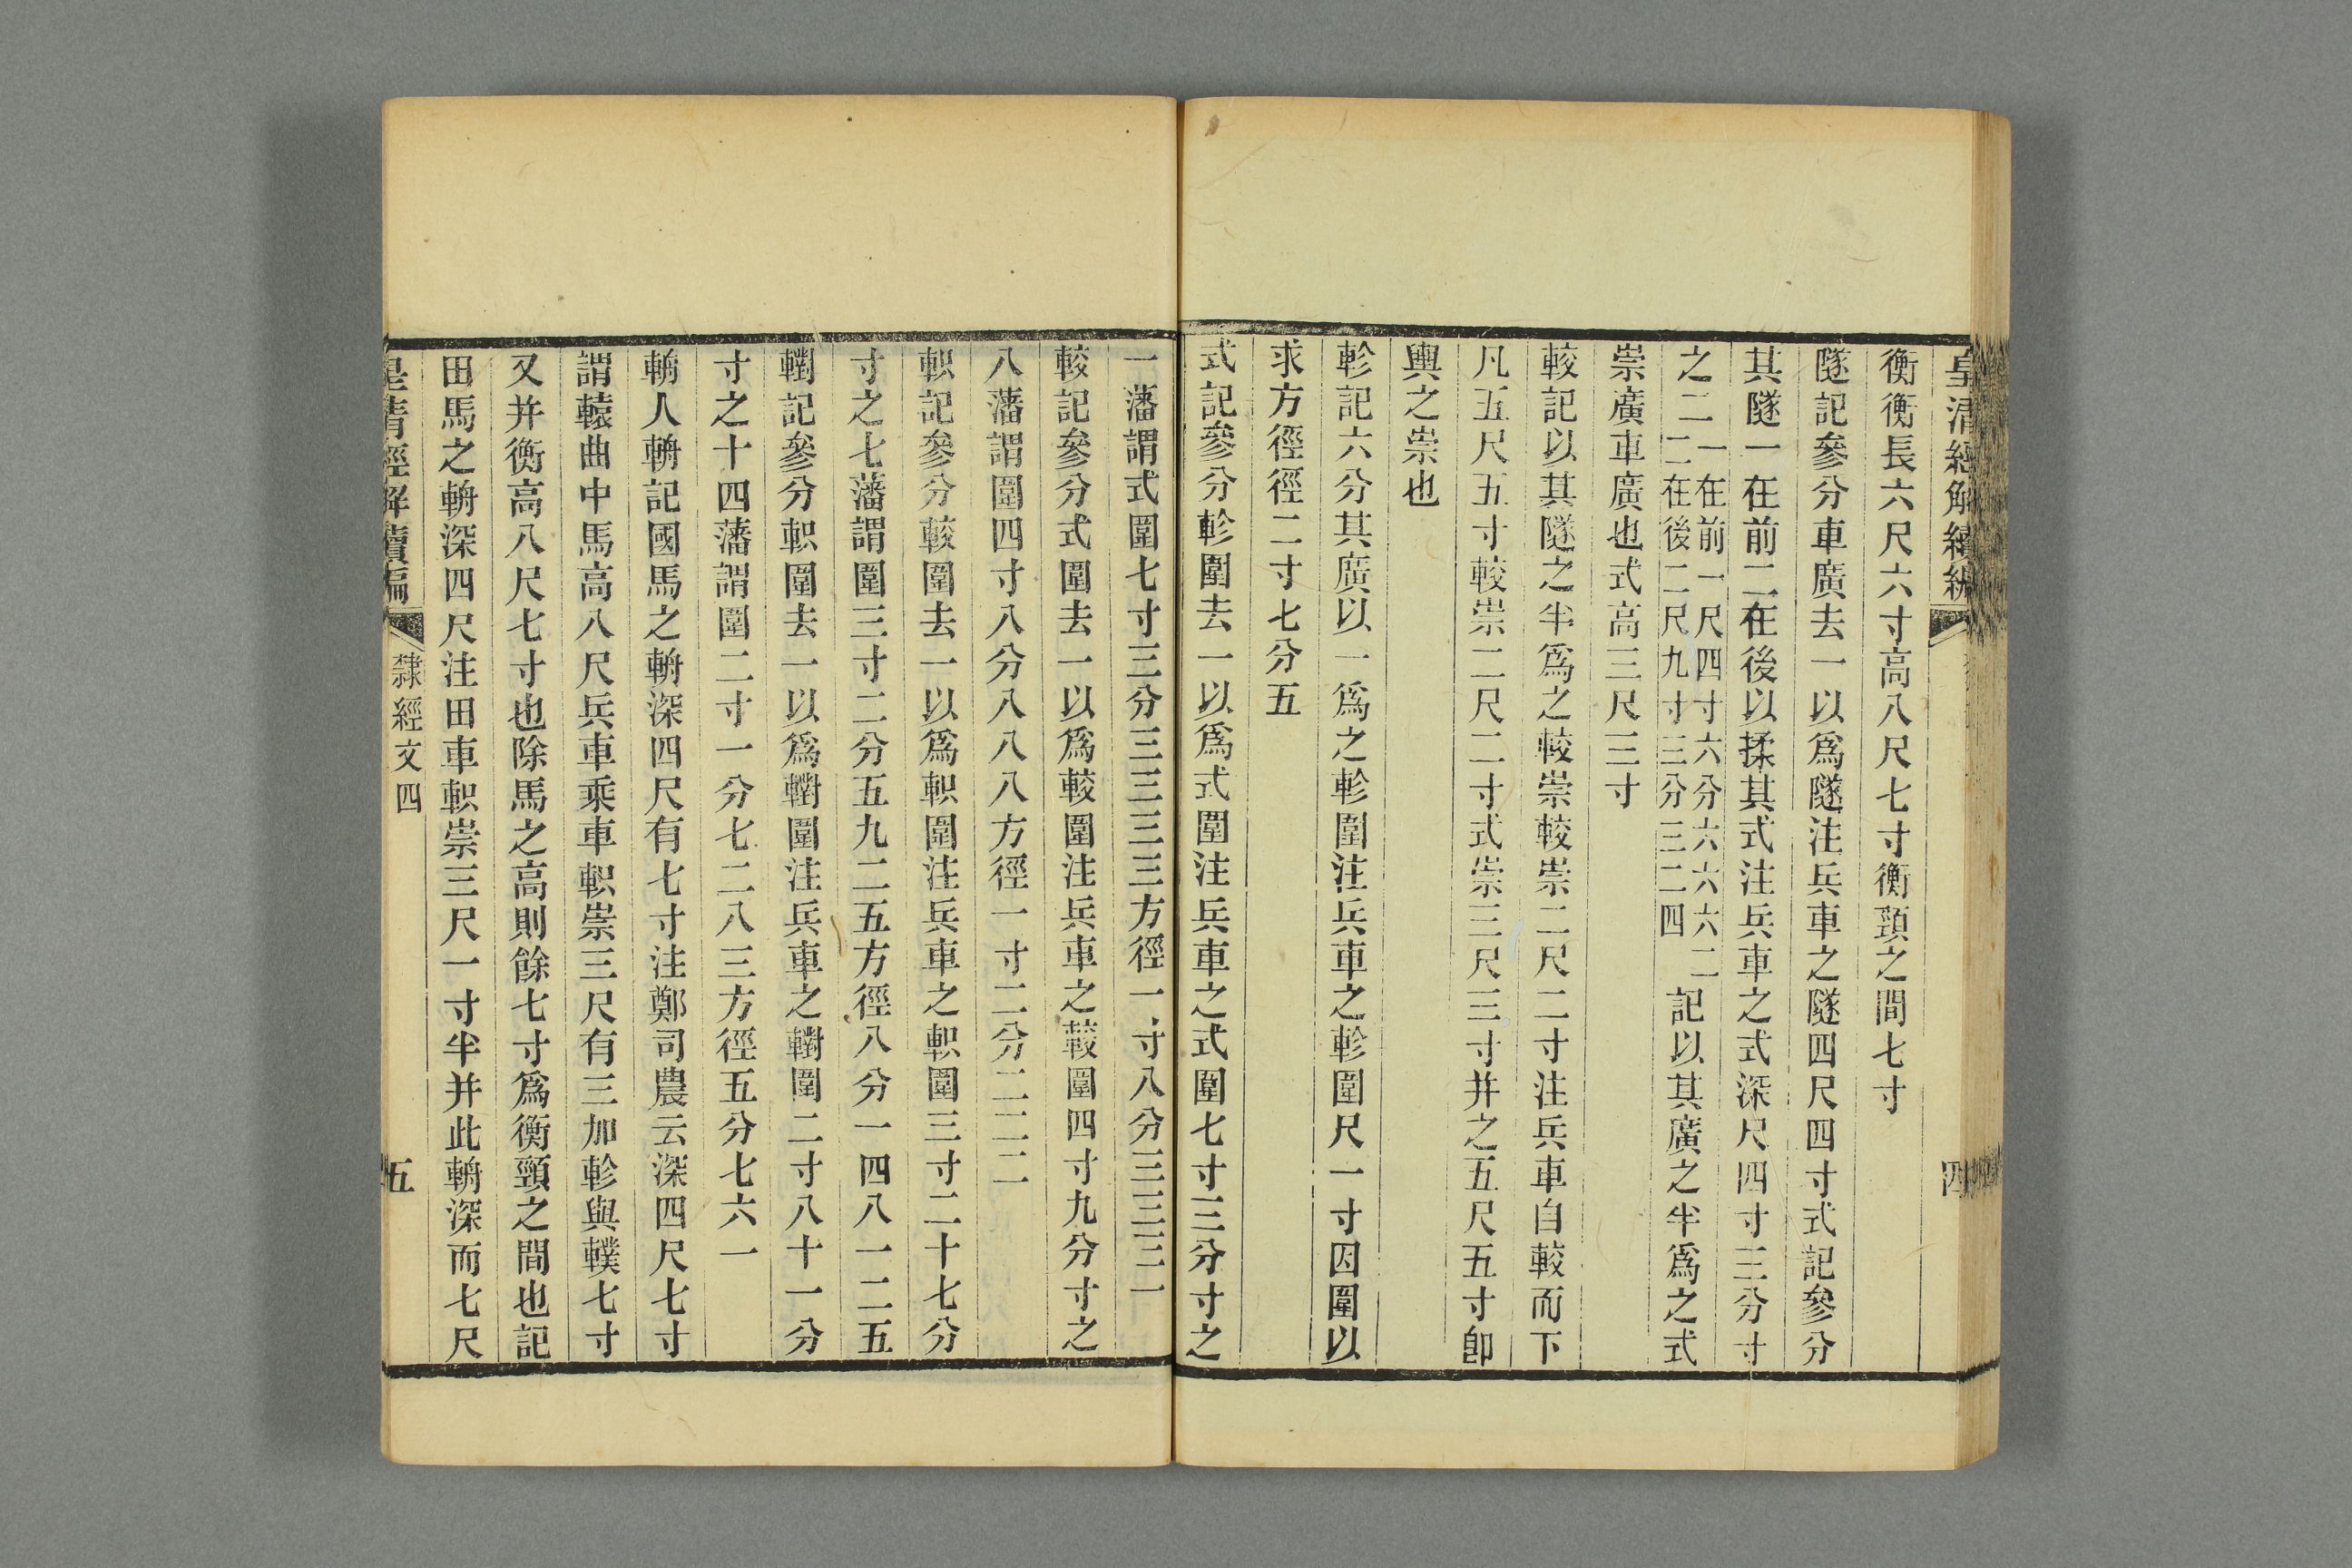 皇清經解續編
四
衡衡長六尺六寸高八尺七寸衡頸之間七寸
隧記參分車廣去一以爲隧注兵車之隧四尺四寸式記參分
其隧一在前二在後以揉其式注兵車之式深尺四寸三分寸
之二一在前一尺四寸六分六六六二
二在後二尺九寸三分三二四
記以其廣之半爲之式
崇廣車廣也式高三尺三寸
較記以其隧之半爲之較崇較崇二尺二寸注兵車自較而下
凡五尺五寸較崇二尺二寸式崇三尺三寸并之五尺五寸卽
輿之崇也
軫記六分其廣以一爲之軫圍注兵車之軫圍尺一寸因圍以
求方徑徑二寸七分五
式記參分軫圍去一以爲式圍注兵車之式圍七寸三分寸之
一藩謂式圍七寸三分三三三三三方徑一寸八分三三三一
較記參分式圍去一以爲較圍注兵車之較圍四寸九分寸之
八藩謂圍四寸八分八八八方徑一寸二分二二二
軹記參分較圍去一以爲軹圍注兵車之軹圍三寸二十七分
寸之七藩謂圍三寸二分五九二五方徑八分一四八一二五
轛記參分軹圍去一以爲轛圍注兵車之轛圍二寸八十一分
寸之十四藩謂圍二寸一分七二八三方徑五分七六一
輈人輈記國馬之輈深四尺有七寸注鄭司農云深四尺七寸
謂轅曲中馬高八尺兵車乘車軹崇三尺有三加軫與轐七寸
又并衡高八尺七寸也除馬之高則餘七寸爲衡頸之間也記
田馬之輈深四尺注田車軹崇三尺一寸半并此輈深而七尺
皇清經解續編
隸經文四
五